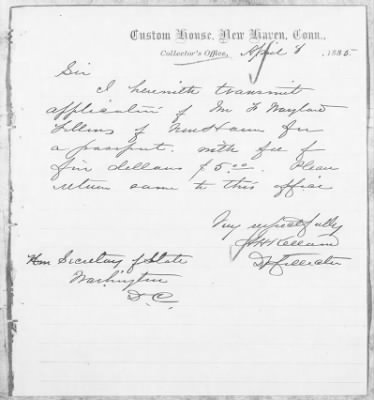 Custom House, New Haven, Conn.,
Collector's Office, April 8 1885
Sir
I herewith transmit
application of Mr F Wayland
of New Haven for
a passport. with fee of
five dollars $5.00. Please
return same to this office
Very respectfully
Hon Secretary of State
Washington
D.C.